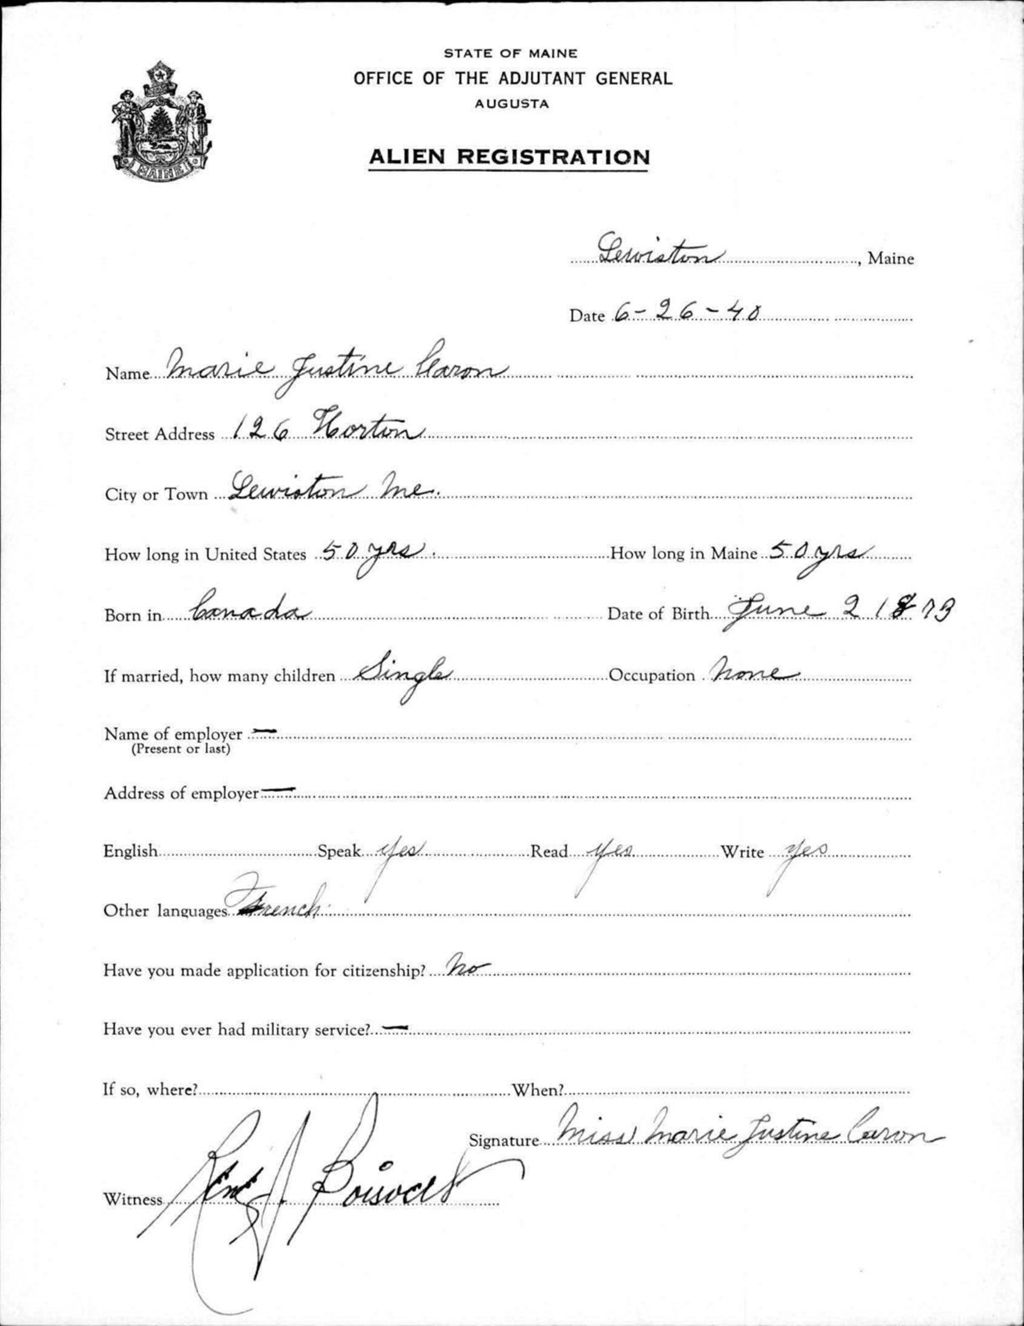 STATE OF MAINE
OFFICE OF THE ADJUTANT GENERAL
AUGUSTA
ALIEN REGISTRATION
MAINE
Lewiston, Maine
Date 6-26-40
Name Marie Justine Caron
Street Address 126 Horton
City or Town Lewiston Me.
How long in United States 50 yrs. How long in Maine 50 yrs
Born in Canada Date of Birth June 2 1873
If married, how many children Single Occupation None
Name of employer —
(Present or last)
Address of employer —
English Speak yes Read yes Write yes
Other languages French
Have you made application for citizenship? No
Have you ever had military service? —
If so, where? When?
Signature Miss Marie Justine Caron
Witness René J. Boisvert